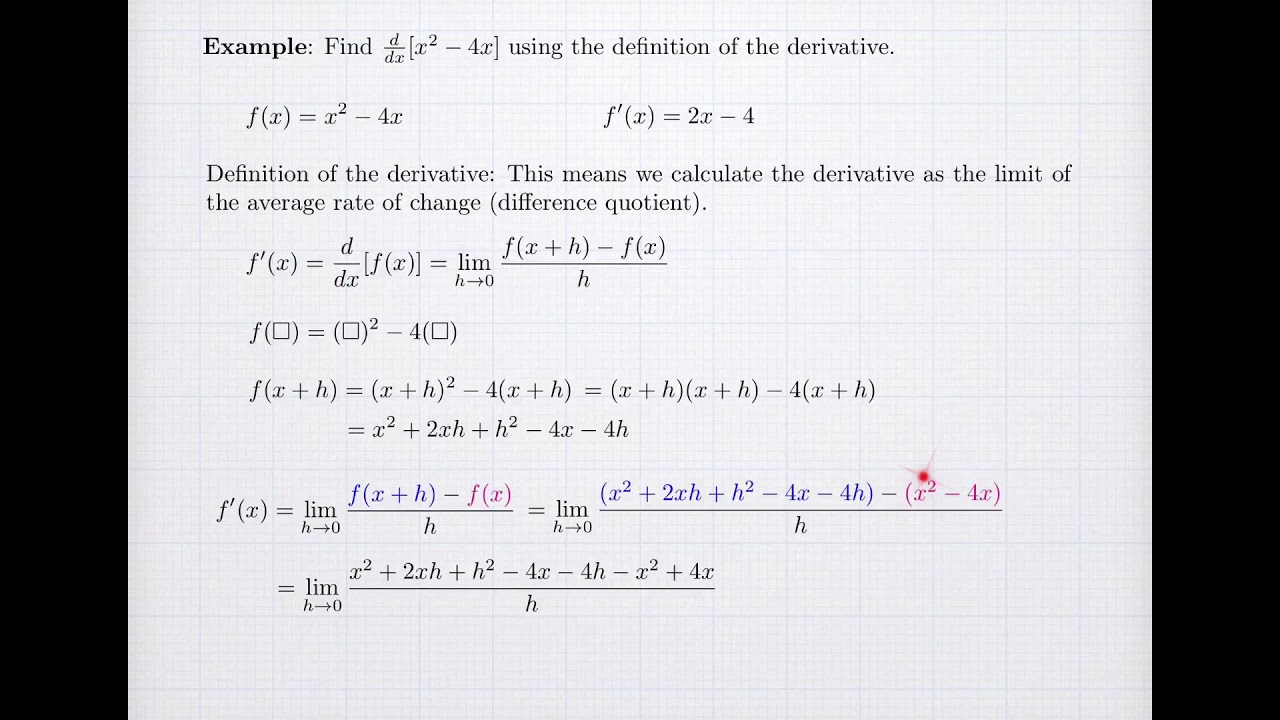 Example: Find d/dx[x² − 4x] using the definition of the derivative.
f(x) = x² − 4x f′(x) = 2x − 4
Definition of the derivative: This means we calculate the derivative as the limit of
the average rate of change (difference quotient).
f′(x) = d/dx[f(x)] = lim h→0 (f(x + h) − f(x))/h
f(□) = (□)² − 4(□)
f(x + h) = (x + h)² − 4(x + h) = (x + h)(x + h) − 4(x + h)
= x² + 2xh + h² − 4x − 4h
f′(x) = lim h→0 (f(x + h) − f(x))/h = lim h→0 ((x² + 2xh + h² − 4x − 4h) − (x² − 4x))/h
= lim h→0 (x² + 2xh + h² − 4x − 4h − x² + 4x)/h